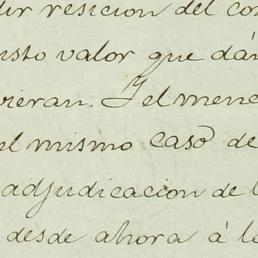 resicion del con
usto valor que dá
vieran. Y el menc
el mismo caso de
adjudicacion de l
desde ahora á lo